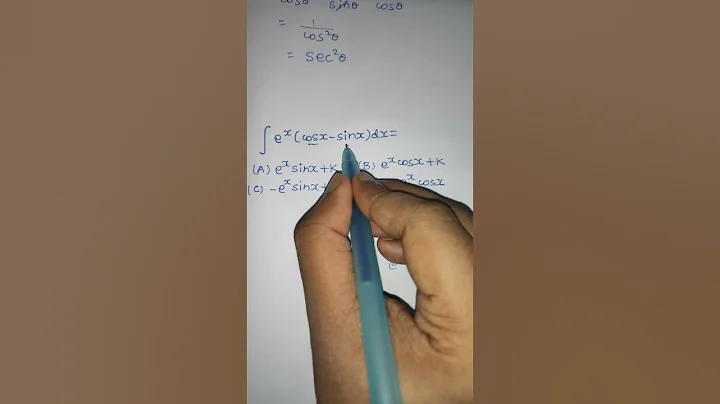 cosθ sinθ cosθ
= 1/cos²θ
= sec²θ
∫ eˣ (cosx - sinx) dx =
(A) eˣ sinx + K (B) eˣ cosx + K
(C) - eˣ sinx + eˣ cosx
e